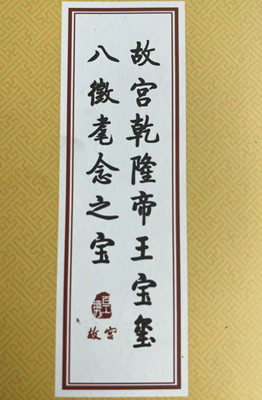 故宫乾隆帝王宝玺
八徵耄念之宝
故宫